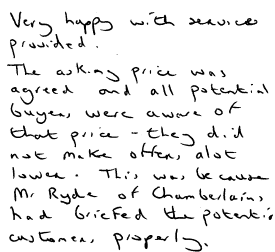 Very happy with services
provided.
The asking price was
agreed and all potential
buyers were aware of
that price - they did
not make offers alot
lower. This was because
Mr Ryde of Chamberlains
had briefed the potenti
customers properly.